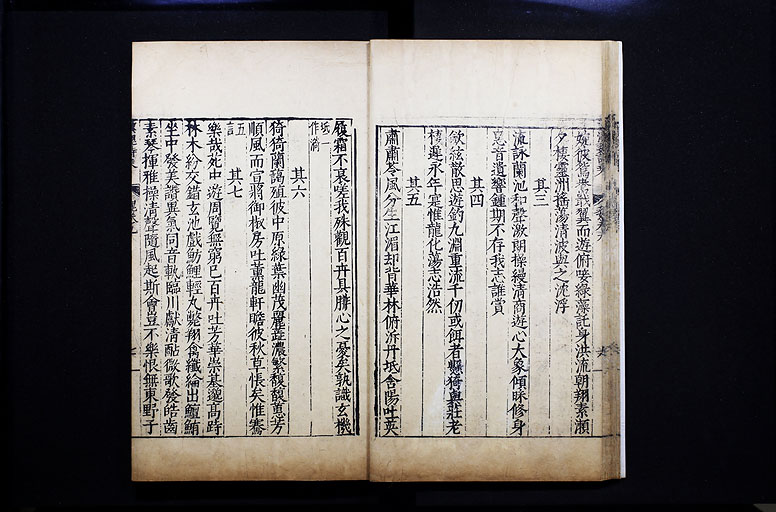 婉彼鴛鴦戢翼而遊俯唼綠藻託身洪流朝翔素瀨
夕棲靈洲搖蕩清波與之沈浮
其三
流詠蘭池和聲激朗操縵清商遊心大象傾昧修身
惠音遺響鍾期不存我志誰賞
其四
斂絃散思遊釣九淵重流千仞或餌者懸猗與莊老
棲遲永年寔惟龍化蕩志浩然
其五
肅肅苓風分生江湄却背華林俯泝丹坻含陽吐英
履霜不衰嗟我殊觀百卉具腓心之憂矣孰識玄機
坻一
作渚
其六
猗猗蘭藹殖彼中原綠葉幽茂麗蘂濃繁馥馥蕙芳
順風而宣將御椒房吐薰龍軒瞻彼秋草悵矣惟騫
五言
其七
樂哉苑中遊周覽無窮已百卉吐芳華崇基邈高跱
林木紛交錯玄池戲魴鯉輕丸斃翔禽纖綸出鱣鮪
坐中發美讚異氣同音軌臨川獻清酤微歌發皓齒
素琴揮雅操清聲隨風起斯會豈不樂恨無東野子